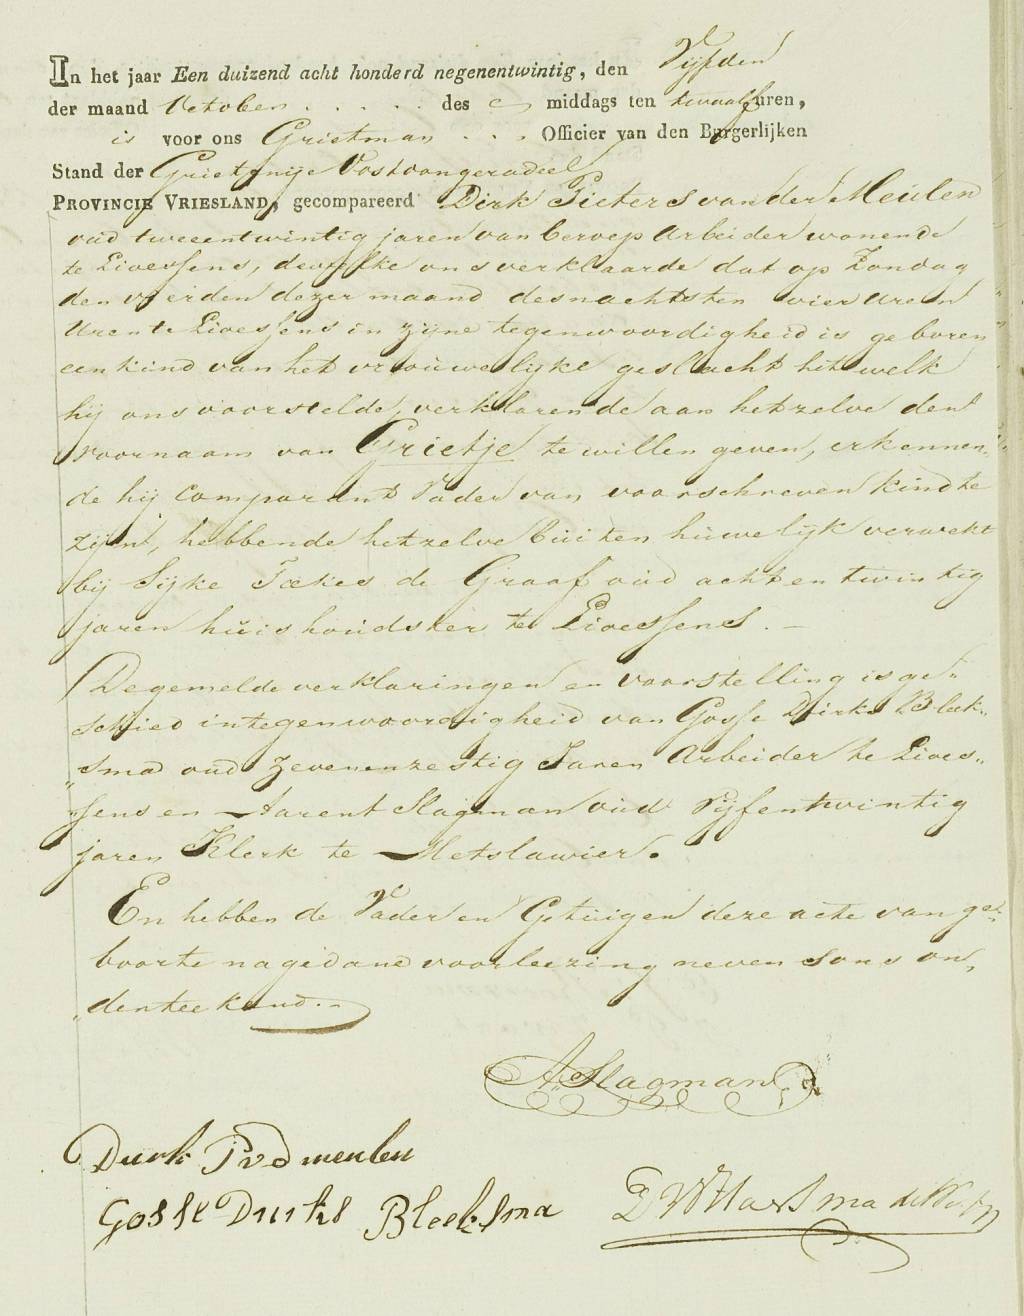 In het jaar Een duizend acht honderd negenentwintig, den Vijfden
der maand October . . . . . des middags ten twaalf uren,
is voor ons Grietman . . . Officier van den Burgerlijken
Stand der Grietenije Oostdongeradeel
PROVINCIE VRIESLAND, gecompareerd Dirk Pieters van der Meulen
oud tweeentwintig jaren van beroep Arbeider wonende
te Lioessens, dewelke ons verklaarde dat op Zondag
den vierden dezer maand desnachts ten vier uren
uren te Lioessens in zijne tegenwoordigheid is geboren
een kind van het vrouwelijke geslacht hetwelk
hij ons voorstelde, verklarende aan hetzelve den
voornaam van Grietje te willen geven, erkennen„
de hij Comparant Vader van voorschreven kind te
zijn, hebbende hetzelve buiten huwelijk verwekt
bij Sijke Tækes de Graaf oud achtentwintig
jaren huishoudster te Lioessens. –
De gemelde verklaringen en voorstelling is ge„
schied in tegenwoordigheid van Gosse Dirks Bleek„
„sma oud zevenenzestig Jaren Arbeider te Lioes„
„sens en Aarent Slagman oud Vijfentwintig
jaren Klerk te Metslawier.
En hebben de Vader en Getuigen deze acte van ge„
boorte na gedane voorleezing nevens ons on„
„derteekend. –
A. Slagman
Durk P v d meulen
Gosse Durks Bleeksma